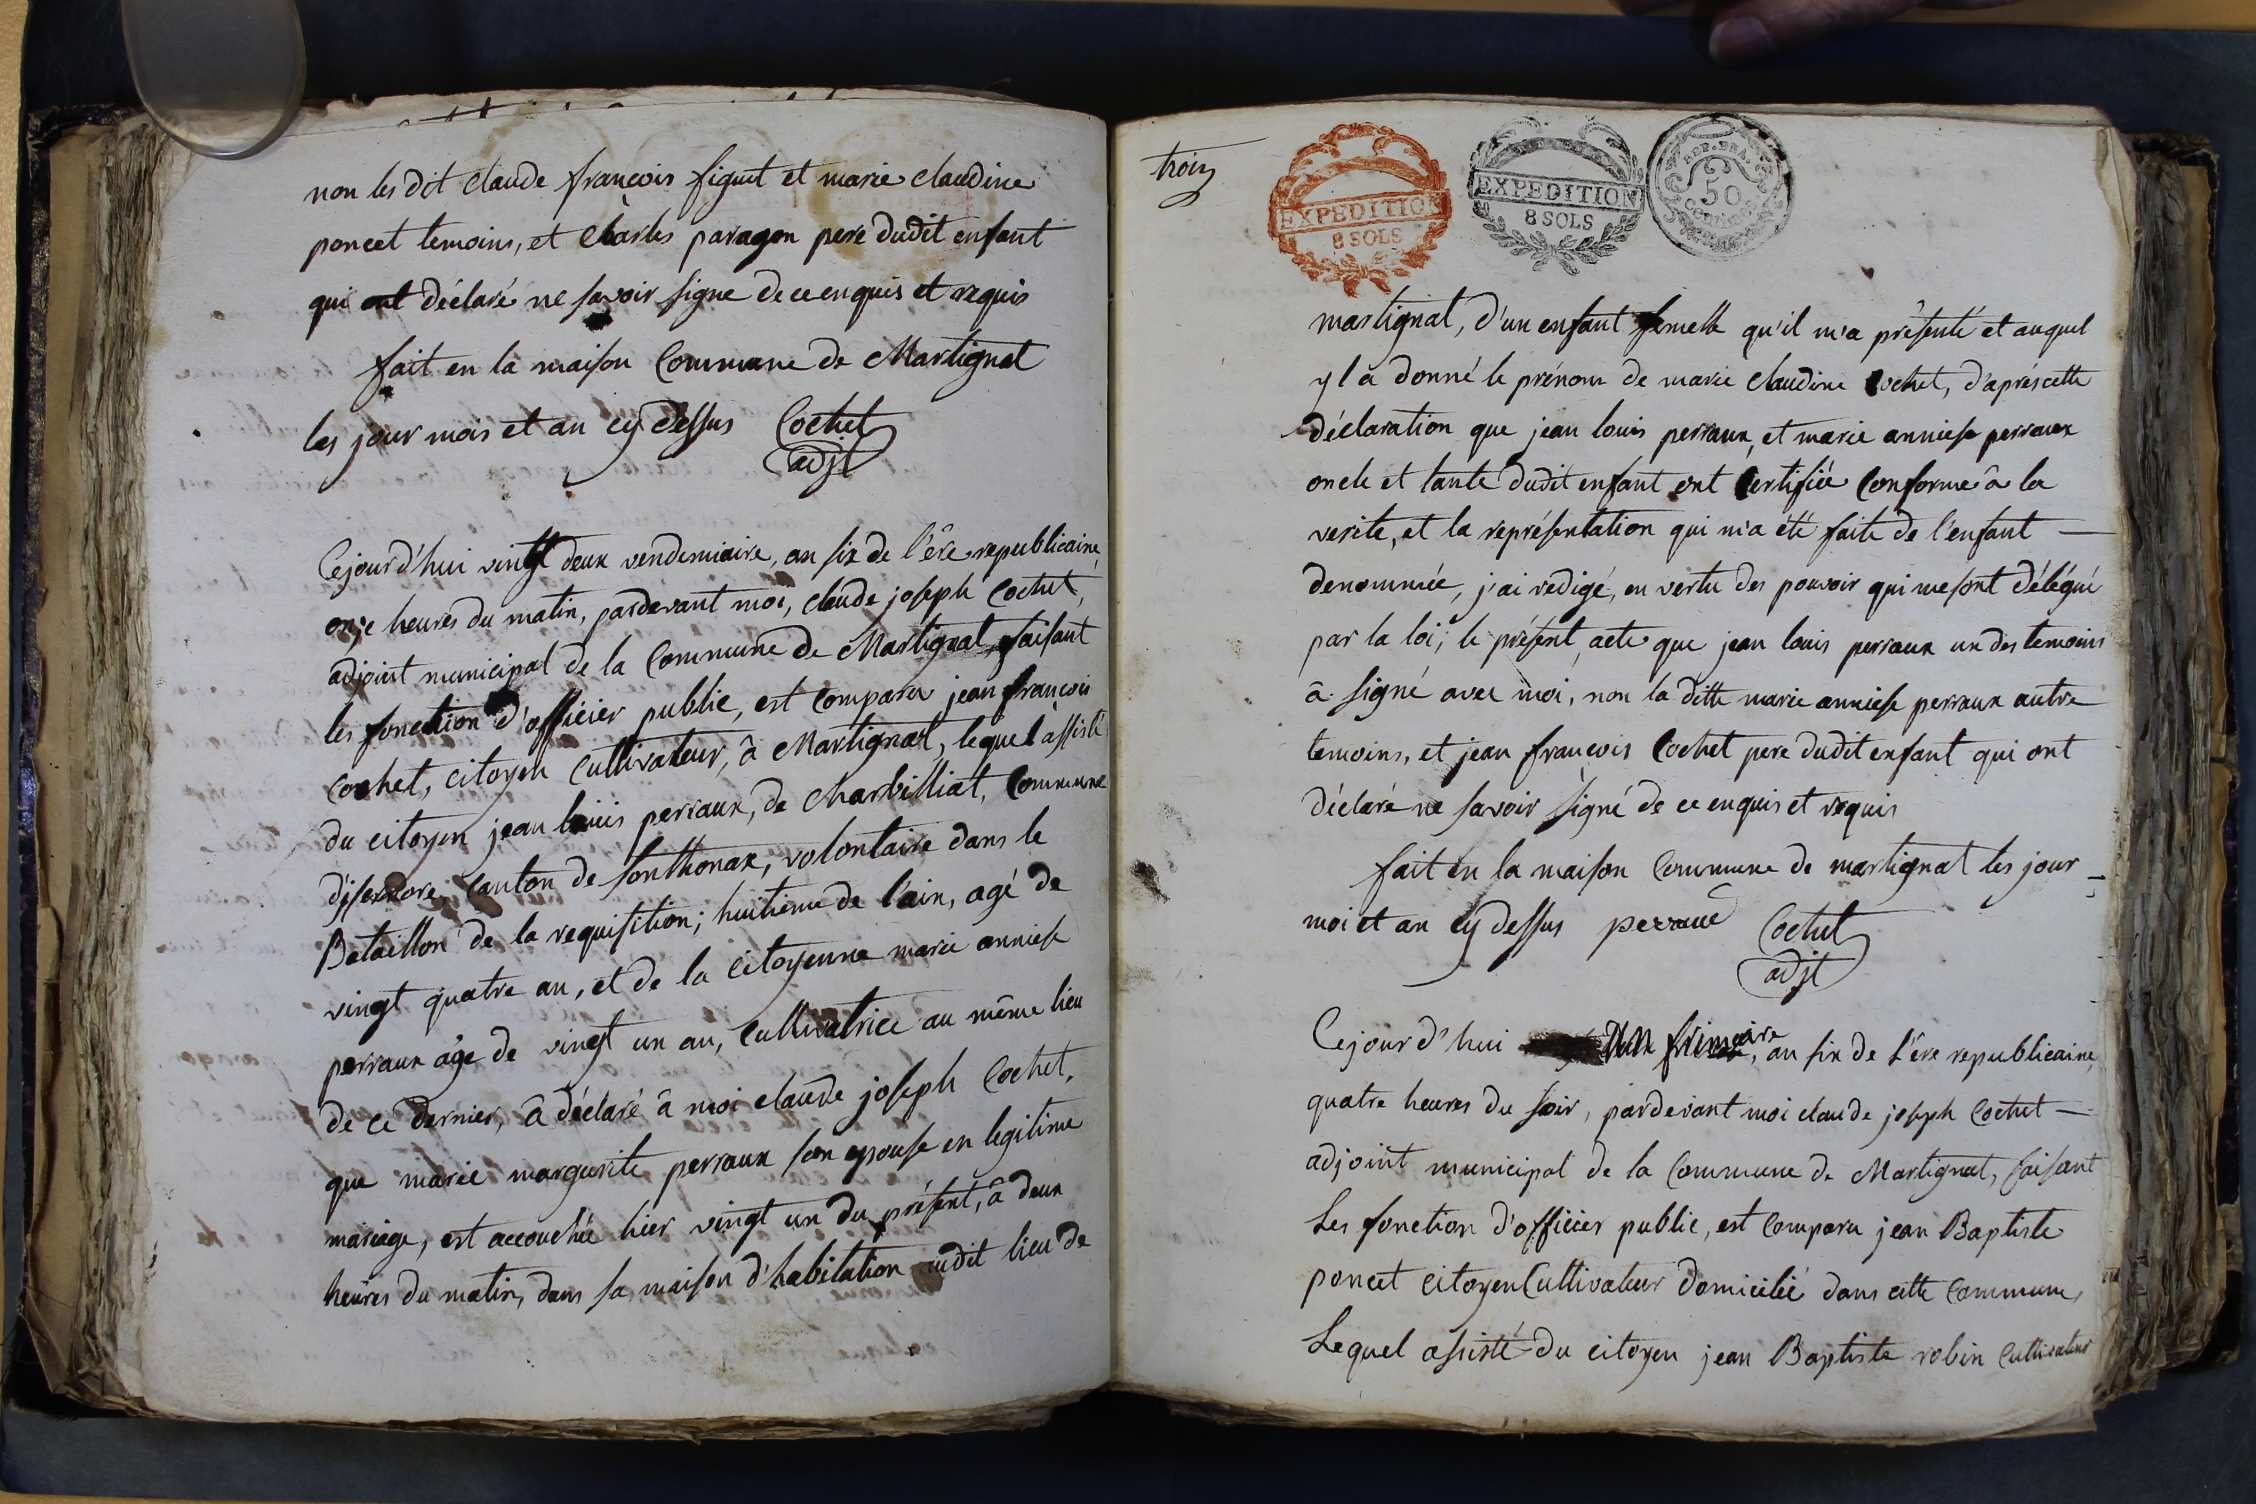 non les dit claude françois figuet et marie claudine
poncet temoins, et Charles paragon pere dudit enfant
qui ont déclaré ne savoir signe de ce enquis et requis
fait en la maison Commune de Martignat
les jour mois et an cy dessus Cochet
adjt
Cejourd'hui vingt deux vendemiaire, an six de l'ére republicaine
onze heures du matin, pardevant moi, claude joseph Cochet,
adjoint municipal de la Commune de Martignat, faisant
les fonction d'officier public, est comparu jean françois
cochet, citoyen cultivateur, â Martignat, lequel assisté
du citoyen jean louis perraux, de charbilliat, Commune
d'jsernore, Canton de sonthonax, volontaire dans le
Bataillon de la requisition; huitieme de l'ain, agé de
vingt quatre an, et de la citoyenne marie anniese
perraux âge de vingt un an, Cultivatrice au même lieu
de ce dernier, â déclaré â moi claude joseph Cochet,
que marie margurite perraux son epouse en legitime
mariage, est accouchée hier vingt un du présent, â deux
heures du matin, dans sa maison d'habitation audit lieu de
trois
EXPEDITION
8 SOLS
EXPEDITION
8 SOLS
REP. FRA.
50
Centimes
martignat, d'un enfant femelle qu'il m'a présenté et auquel
y l â donné le prénom de marie claudine Cochet, d'aprés cette
déclaration que jean louis perraux, et marie anniese perraux
oncle et tante dudit enfant ont Certifiée Conforme â la
verite, et la représentation qui m'a été faite de l'enfant —
denommée, j'ai redigé, en vertu des pouvoir qui me sont délégué
par la loi, le présent acte que jean louis perraux un des temoins
â signé avec moi, non la ditte marie anniese perraux autre
temoins, et jean françois Cochet pere dudit enfant qui ont
déclaré ne savoir signé de ce enquis et requis
fait en la maison Commune de martignat les jour
moi et an cy dessus perraue Cochet
adjt
Cejourd'hui Un frimaire, an six de l'ére republicaine,
quatre heures du soir, pardevant moi claude joseph Cochet —
adjoint municipal de la Commune de Martignat, faisant
Les fonction d'officier public, est comparu jean Baptiste
poncet citoyen Cultivateur domicilié dans cette Commune,
Lequel assisté du citoyen jean Baptiste robin Cultivateur